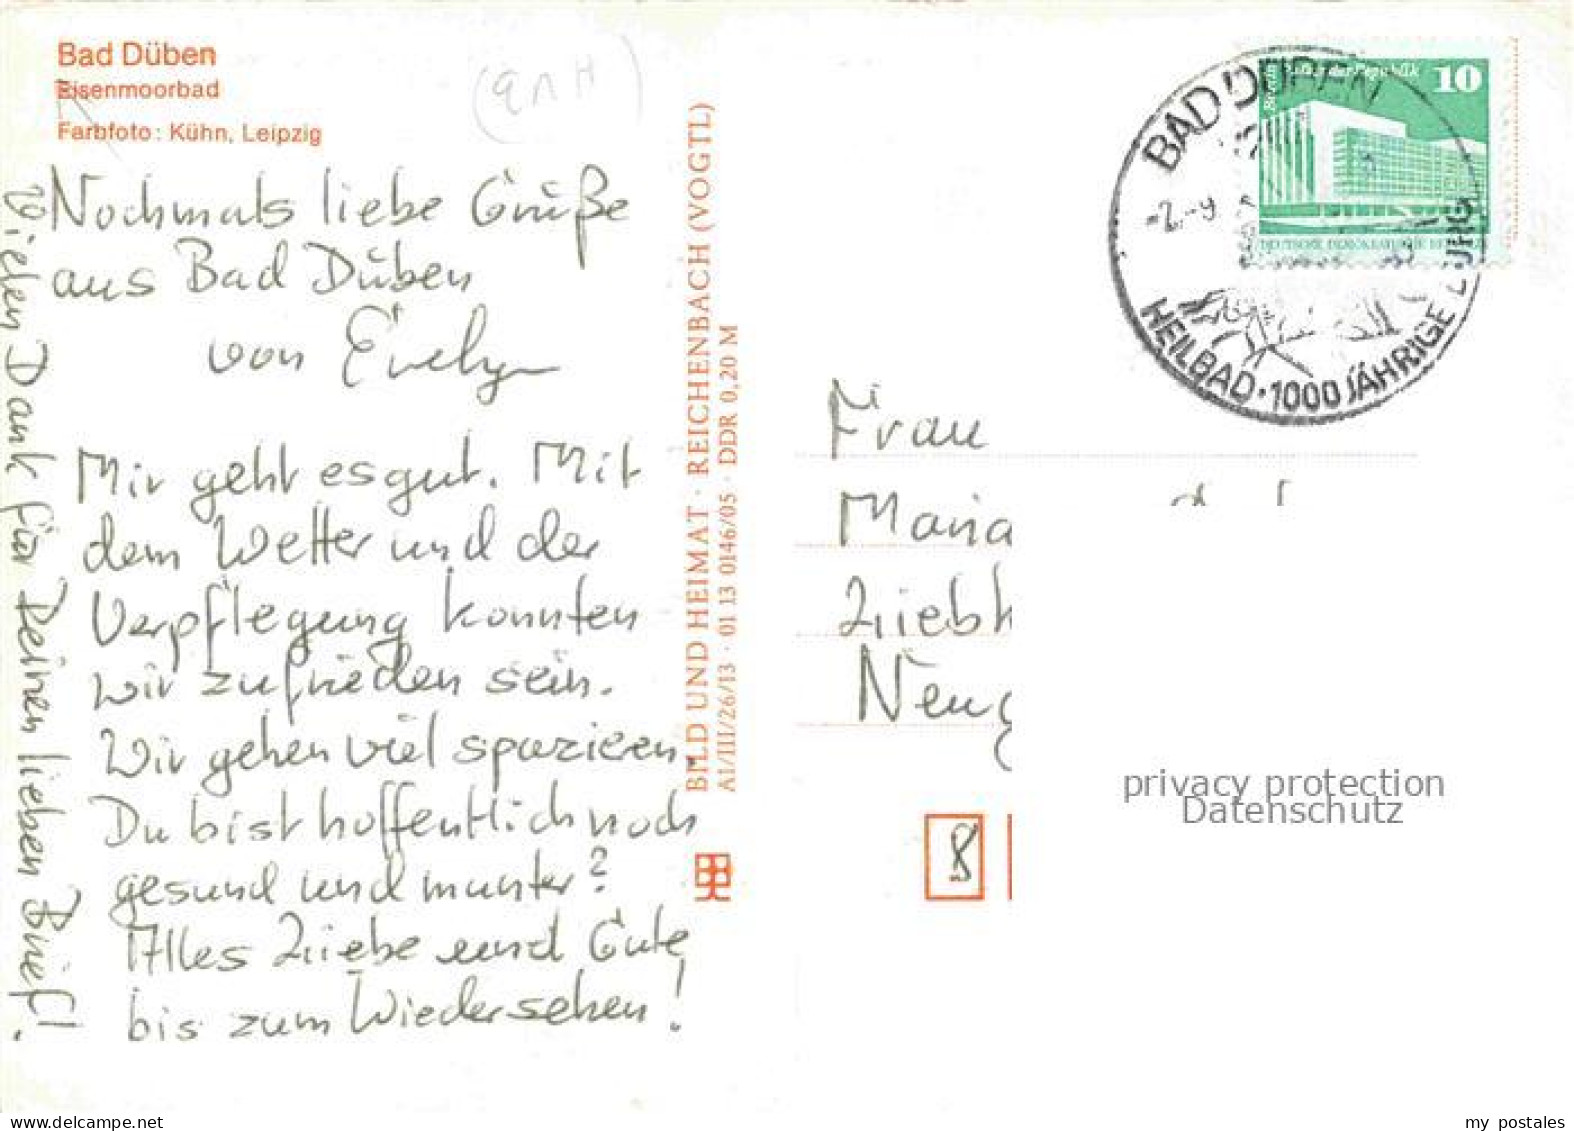 Bad Düben
Eisenmoorbad
Farbfoto: Kühn, Leipzig
Nochmals liebe Grüße
aus Bad Düben
von Evelyn
Mir geht es gut. Mit
dem Wetter und der
Verpflegung konnten
wir zufrieden sein.
Wir gehen viel spazieren.
Du bist hoffentlich noch
gesund und munter?
Alles Liebe und Gute
bis zum Wiedersehen!
Vielen Dank für Deinen lieben Brief!
BILD UND HEIMAT · REICHENBACH (VOGTL)
A1/III/26/13 · 01 13 0146/05 · DDR 0,20 M
10
BAD DÜBEN
HEILBAD · 1000 JÄHRIGE BURG
DEUTSCHE DEMOKRATISCHE
Frau
Maria
Liebk
Neug
8
privacy protection
Datenschutz
delcampe.net
my postales